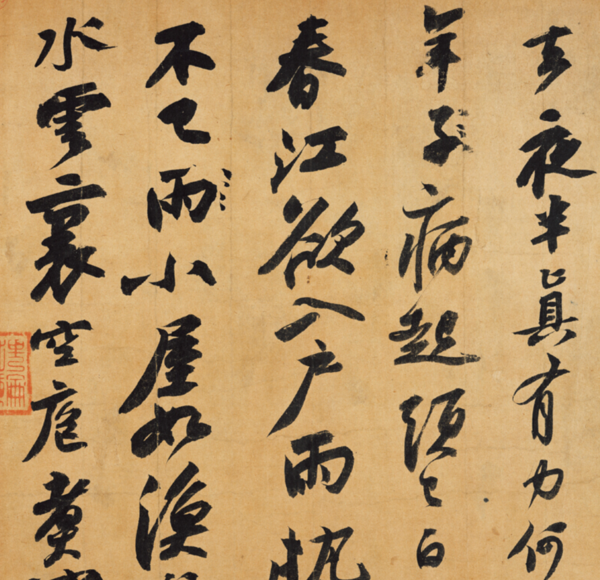 去夜半真有力何
年子病起頭已白
春江欲入戶雨勢
不已雨小屋如漁
水雲裏空庖煑